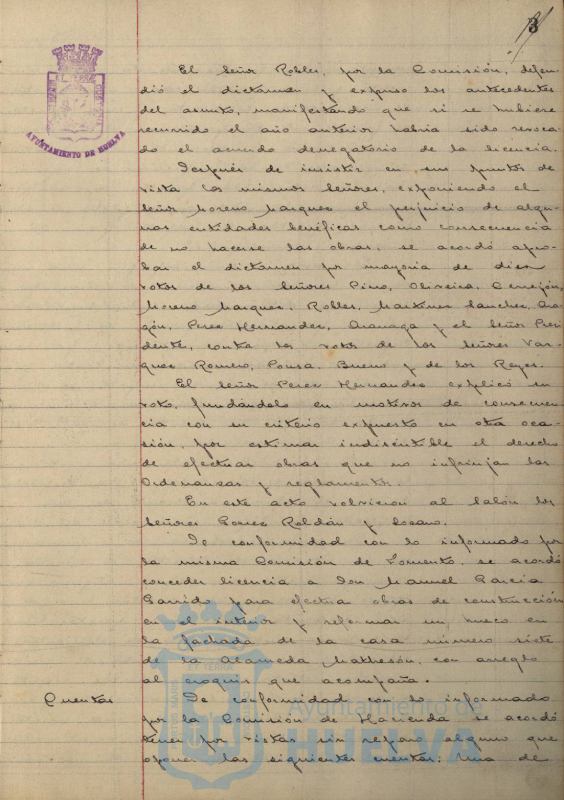 3
AYUNTAMIENTO DE HUELVA
El Señor Robles, por la Comisión, defen-
dió el dictamen y expuso los antecedentes
del asunto, manifestando que si se hubiese
recurrido el año anterior habria sido revoca-
do el acuerdo denegatorio de la licencia.
Después de insistir en sus puntos de
vista los mismos Señores, exponiendo el
Señor Moreno Marquez el perjuicio de algu-
nas entidades benéficas como consecuencia
de no hacerse las obras, se acordó apro-
bar el dictamen por mayoria de diez
votos de los Señores Pino, Oliveira, Cerrejón,
Moreno Marquez, Robles, Martinez Sanchez, Ara-
gón, Perez Hernandez, y el Señor Presi-
dente, contra los votos de los Señores Vaz-
quez Romero, Ponsa, Bueno y de los Reyes.
El Señor Perez Hernandez explicó su
voto, fundándolo en motivos de consecuen-
cia con su criterio expuesto en otra oca-
sión, por estimar indiscutible el derecho
de efectuar obras que no infrinjan las
Ordenanzas y reglamentos.
En este acto volvieron al Salón los
Señores Gomez Roldán y Lozano.
De conformidad con lo informado por
la misma Comisión de Fomento, se acordó
conceder licencia a Don Manuel Garcia
Garrido para efectua obras de construcción
en el interior y reformar un hueco en
la fachada de la casa número siete
de la Alameda Mathesón, con arreglo
al croquis que acompaña.
Cuentas De conformidad con lo informado
por la Comisión de Hacienda se acordó
tener por vistas sin reparo alguno que
oponer las siguientes cuentas: Una de
Ayuntamiento de
HUELVA